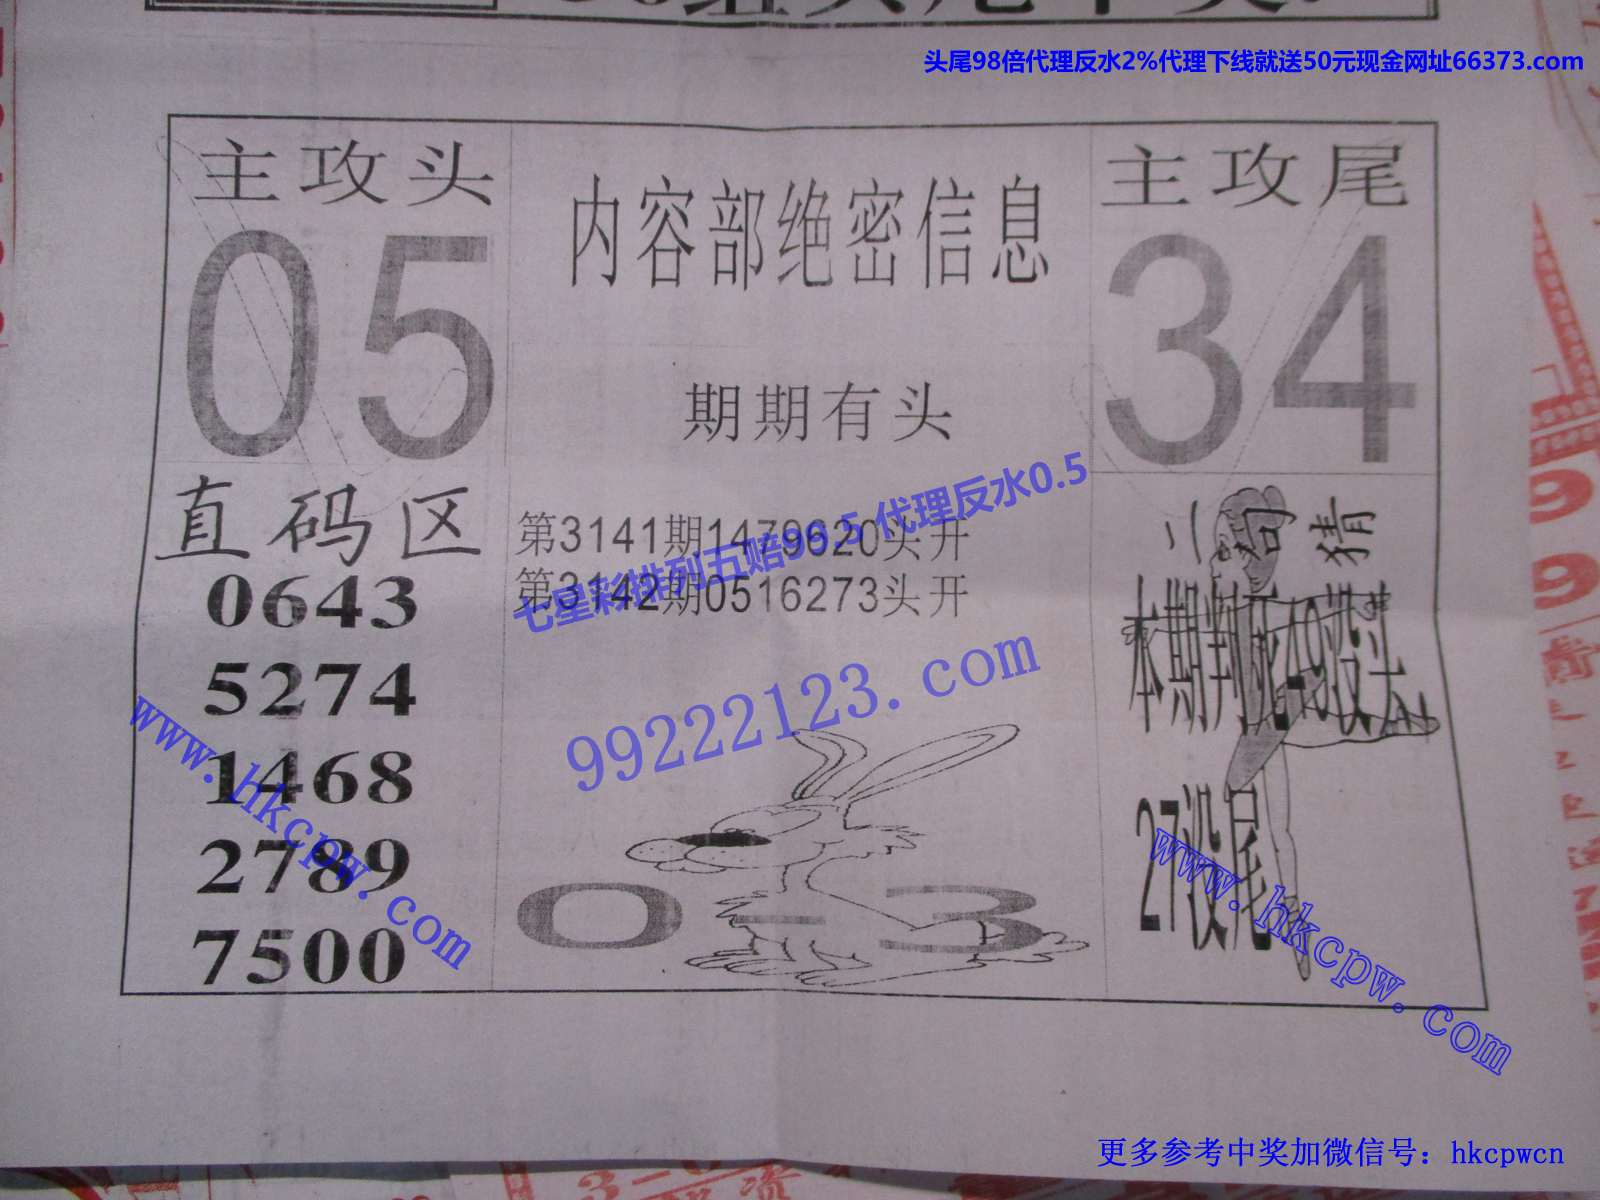 头尾98倍代理反水2%代理下线就送50元现金网址66373.com
主攻头
05
内容部绝密信息
主攻尾
34
期期有头
直码区
0643
5274
1468
2789
7500
第3141期1479620头开
第3142期0516273头开
七星彩排列五赔98.5 代理反水0.5
99222123.com
0-3
二句猜
本期判死49没头
27没尾
www.hkcpw.com
www.hkcpw.com
更多参考中奖加微信号：hkcpwcn